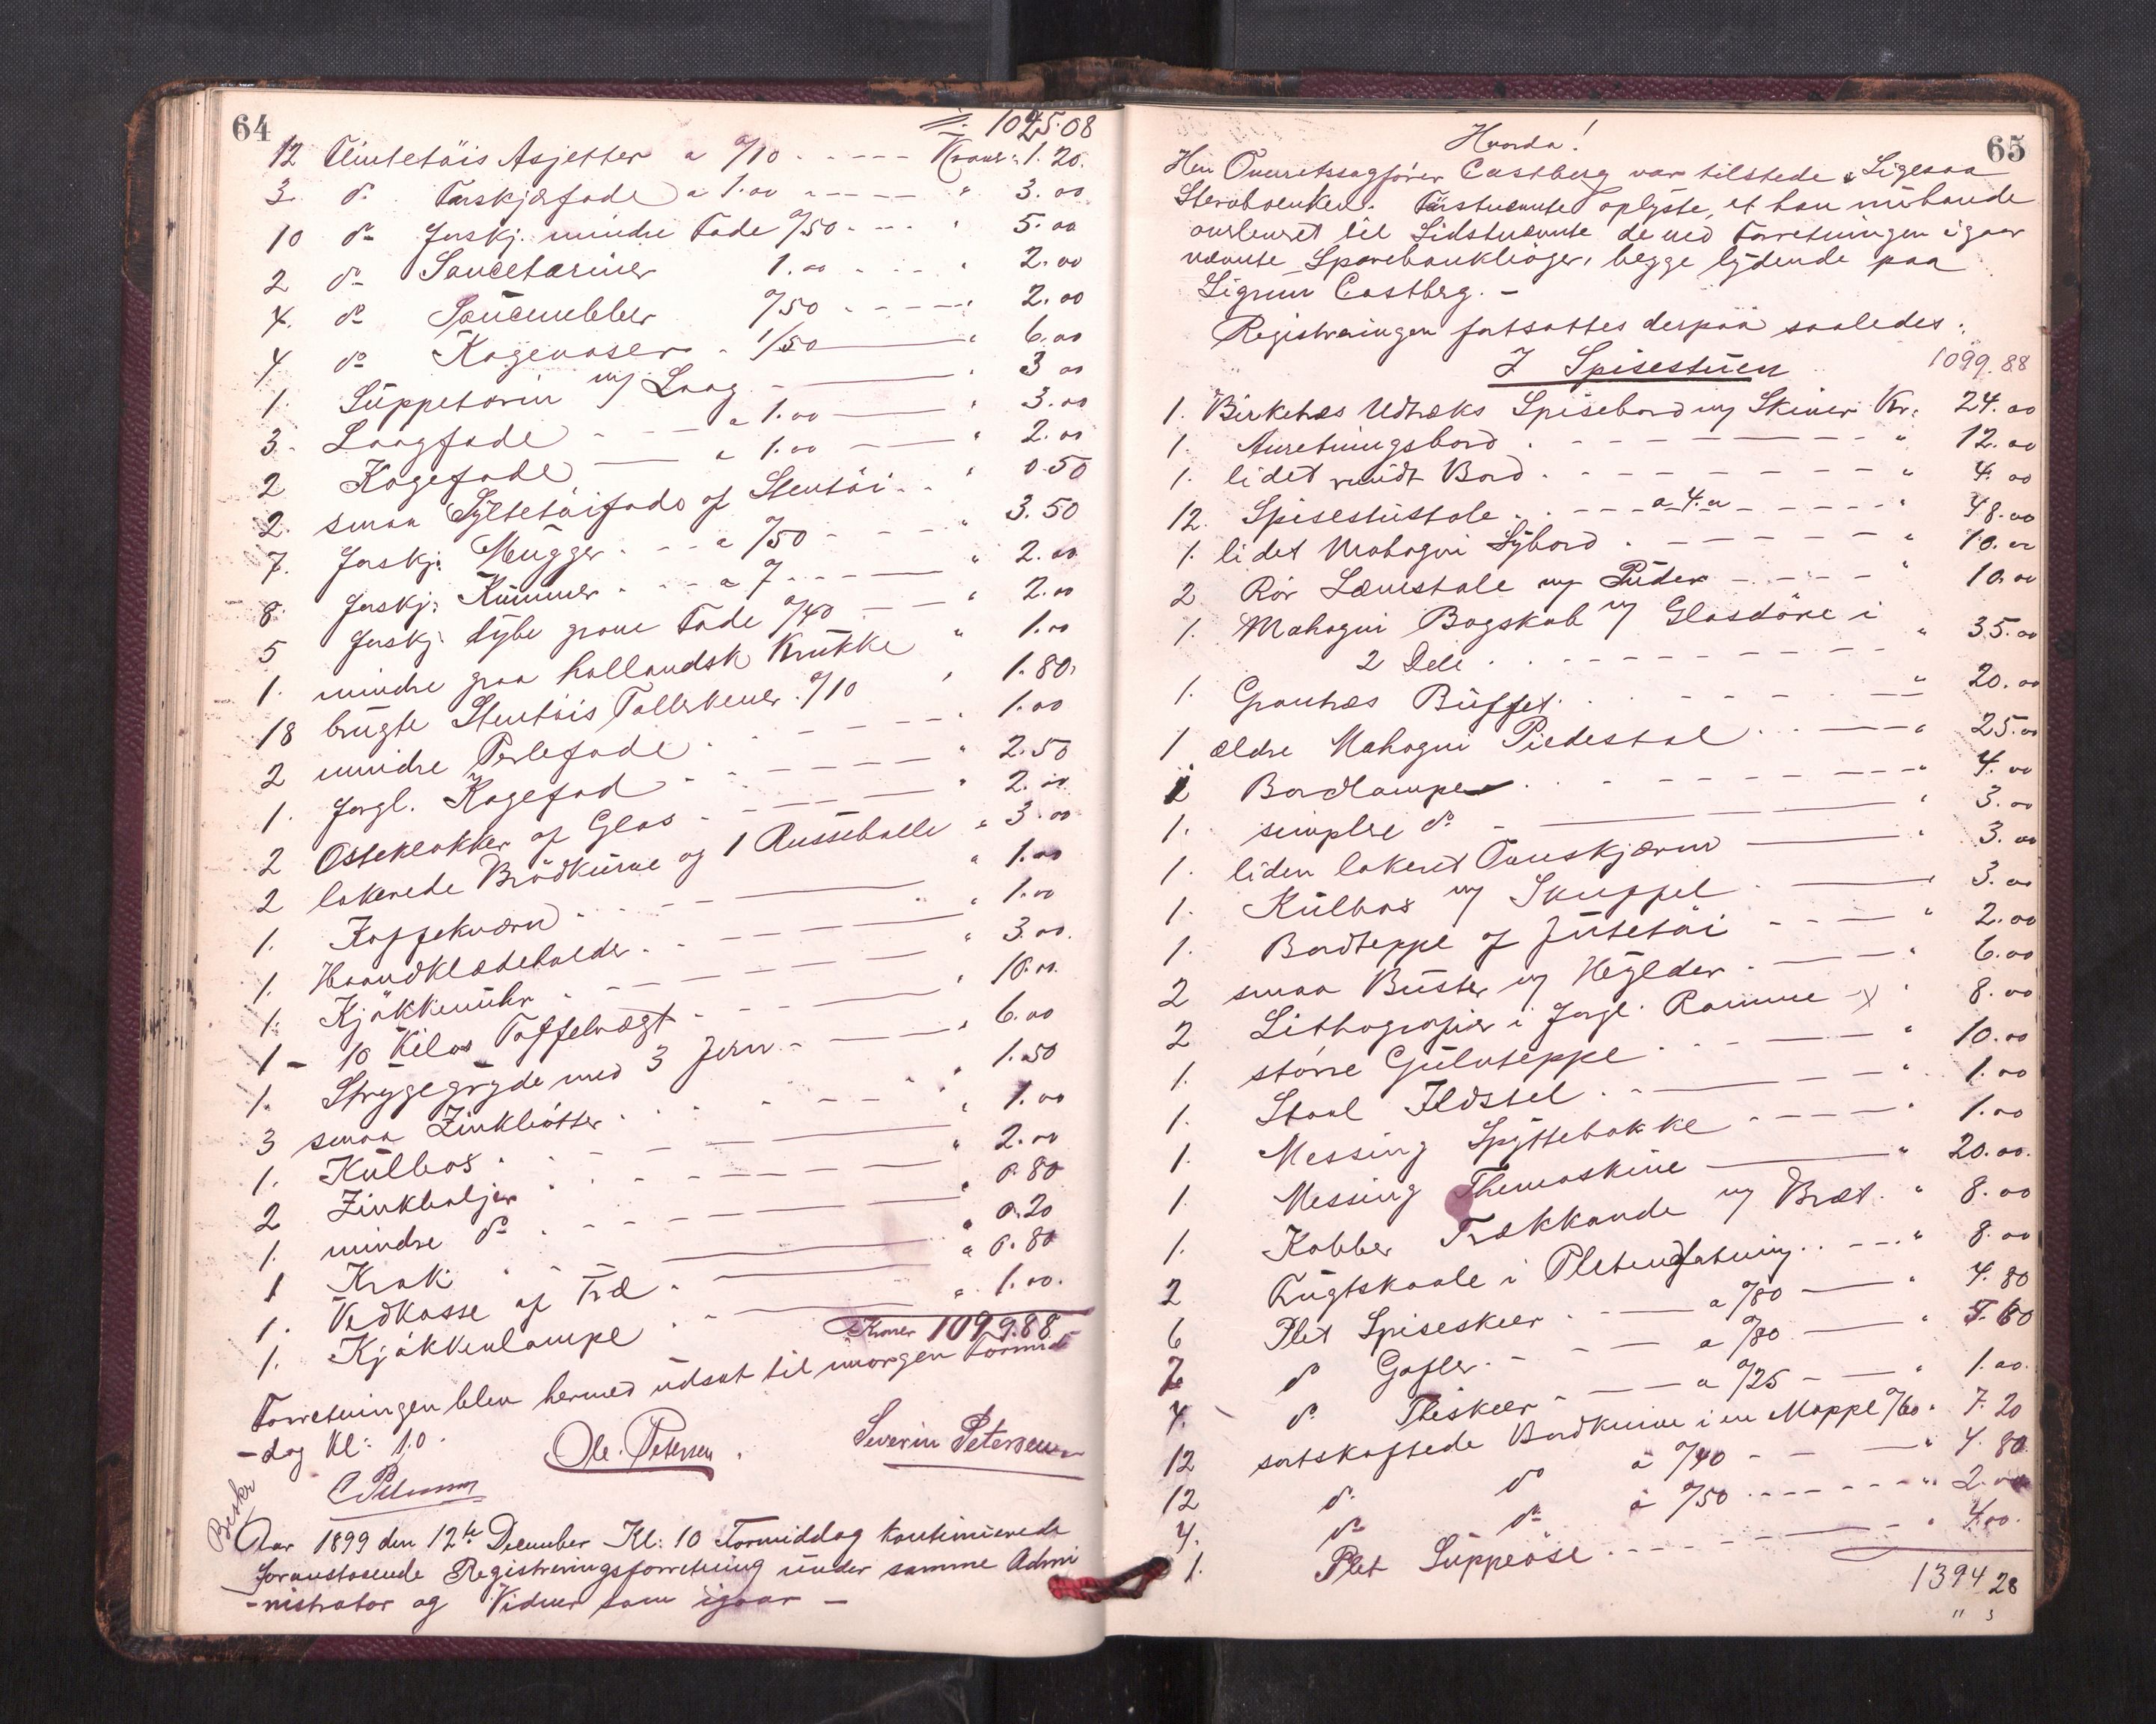 64
1025.08
12 Flintetøis Asjetter a %10 Kroner: 1.20.
3 do Forskj. fade a 1.00 " 3.00
10 do Forskj. mindre Fade %50 " 5.00
2 do Saucetæriner 1.00 " 2.00
4. do Saucenebber %50 " 2.00
4 do Kagevaser 1/50 " 6.00
1. Süppeterin m/ Laag " 3 00
3. Laagfade a 1.00 " 3.00
2 Kagefade a 1.00 " 2.00
2. smaa Syltetøifade af Stentøi " 0.50
7. Forskj. Mugger a %50 " 3.50
8. Forskj. Kummer a " 2.00
5 Forskj. dybe graae Fade %40 " 2.00
1. mindre graa hollandsk Krukke " 1.00
18 brugte Stentøis Tallerkener %10 " 1.80
2 mindre Perlefade " 1.00
1. Forgl. Kagefad " 2.50
2 Osteklokker af Glas " 2.00
2 lakerede Brødkurve og 1 Aussebolle " 3.00
1. Kaffekværn " 1.00
1. Haandklædeholder " 1.00
1. Kjøkkenuhr " 3.00.
1 - 10 Kilos Taffelvægt " 10.00.
1. Strygegryde med 3 Jern " 6.00
3 smaa Zinkbøtter " 1.50
1. Kulboks " 1.00
2 Zinkbaljer " 2.00
1. mindre do " 0.80
1 Krak " 0.20
1. Vedkasse af Træ " 0.80
1. Kjøkkenlampe " 1.00.
Kroner 1099.88
Forretningen blev hermed udsat til imorgen Formid
-dag Kl: 10.
Ole. Petersen. Severin Petersen
C Petersen
Beskr
Aar 1899 den 12te December Kl: 10 Formiddag kontinuerede
foranstaaende Registreringsforretning under samme Admi
-nistrator og Vidner som igaar -
65
Hvorda!
Herr Overretssagfører Castberg var tilstede. Ligesaa
Stervboenken. Førstnævnte oplyste, at han nu havde
overleveret til Sidstnævnte de ved Forretningen igaar
nævnte Sparebankbøger, begge lydende paa
Sigrun Castberg. -
Registreringen fortsattes derpaa saaledes:
I Spisestuen 1099.88
1. Birketræs Udtræks Spisebord m/ Skiner Kr: 24.00
1. Anretningsbord " 12.00
1. lidet rundt Bord " 4.00
12. Spisestustole a 4.00 " 48.00
1. lidet Mahogni Sybord " 10.00
2 Rør Lænestole m/ Puder " 10.00
1. Mahogni Bogskab m/ Glasdøre i
2 Dele " 35.00
1. Grantræs Buffet " 20.00
1 ældre Mahogni Piedestal " 25.00
1 Bordlampe " 4.00
1. simplere do " 3.00
1. liden lakeret Ovnskjærm " 3.00
1. Kulboks m/ Skuffel " 3.00
1. Bordteppe af Jutetøi " 2.00
2 smaa Buster m/ Hylder " 6.00
2 Lithografier i Forgl. Ramme " 8.00
1. større Gulvteppe " 10.00
1. Staal Ildstel " 1.00
1. Messing Spyttebakke " 1.00
1. Messing Themaskine " 20.00.
1. Kobber Trækkande m/ Bræt " 8.00
2 Frugtskaale i Pletindfatning " 8.00
6 Plet Spiseskeer a %80 " 4.80
7 do Gafler a %80 " 5.60
4. do Theskeer a %25 " 1.00.
12 sortskaftede Bordknive i en Mappe %60 " 7.20
12 do do à %40 " 4.80
4. do do à %50 " 2.00
1. Plet Suppeøse " 4.00.
1394 28